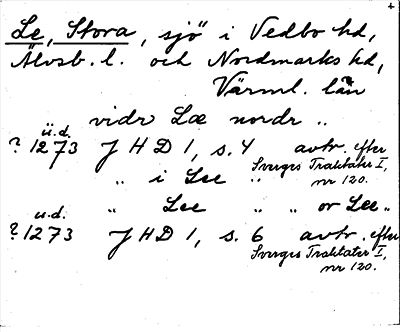 +
Le, Stora, sjö i Vedbo hd,
Älvsb. l. och Nordmarks hd,
Värml. län
vidr Læ nordr ..
u.d.
? 1273 JHD 1, s. 4 avtr. efter
Sverges Traktater I,
nr 120.
" i Lee "
" Lee " " or Lee "
u.d.
? 1273 JHD 1, s. 6 avtr. efter
Sverges Traktater I,
nr 120.